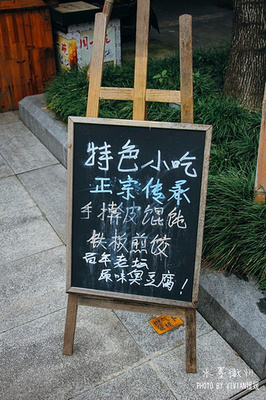 特色小吃
正宗传承
手擀皮馄饨
铁板煎饺
百年老坛
原味臭豆腐！
PHOTO BY VIVIAN